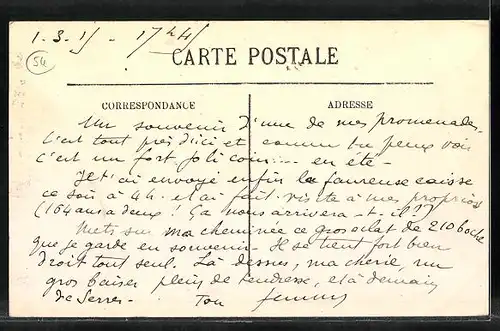 1.3.15 - 1744
54
CARTE POSTALE
CORRESPONDANCE
ADRESSE
Un souvenir d'une de mes promenades.
C'est tout près d'ici et comme tu peux voir
c'est un fort joli coin... en été -
Je t'ai envoyé enfin la fameuse caisse
ce soir à 4h. et ai fait visite à mes proprios
(164 ans à deux! Ça nous arrivera-t-il ??
Mets sur ma cheminée ce gros éclat de 210 boche
que je garde en souvenir - Il se tient fort bien
droit tout seul. Là dessus, ma chérie, un
gros baiser plein de tendresse, et à demain
de Serres - Ton